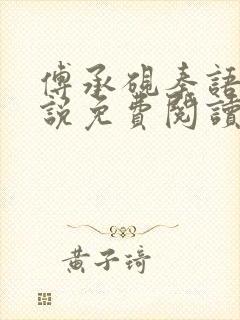 傅承硯秦語
說免費閱讀
黃子琦